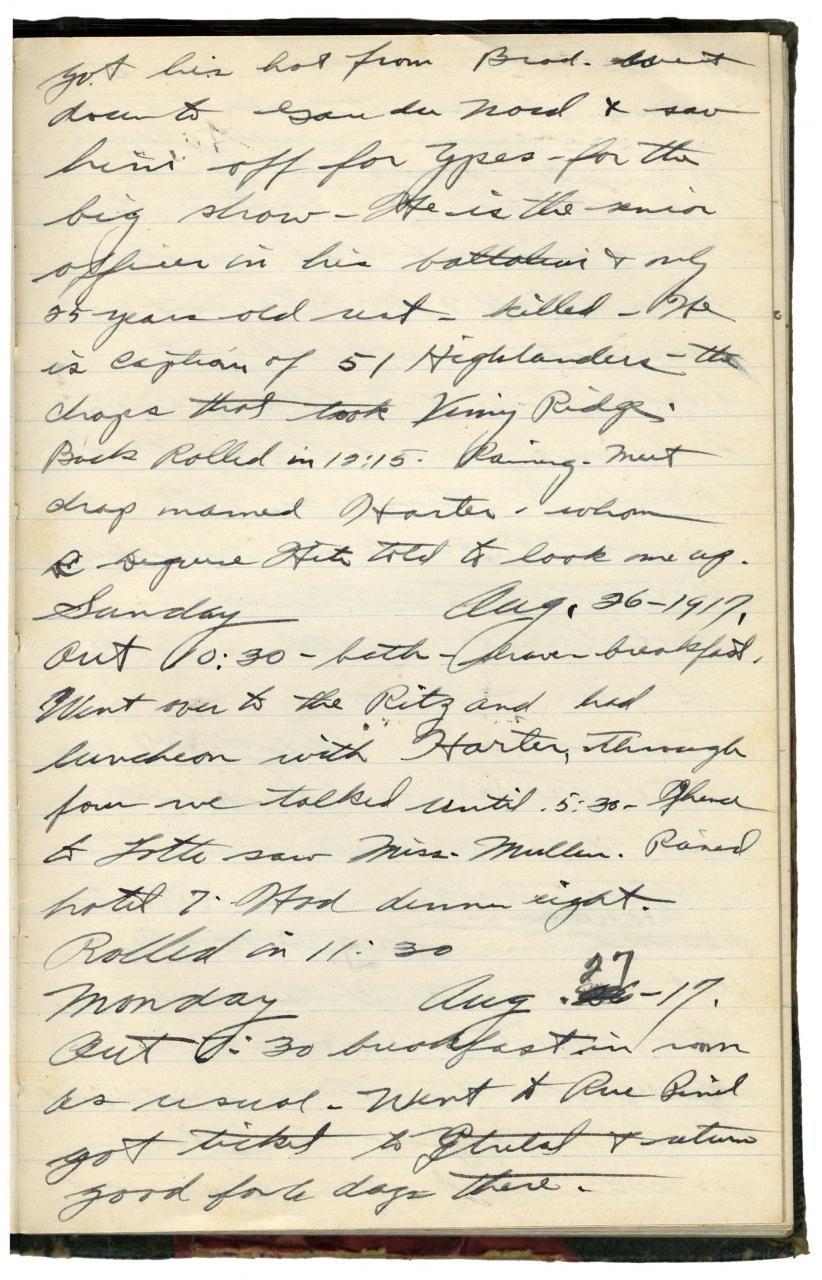 got his hat from Brad. went
down to Gare du Nord & saw
him off for Ypes - for the
big show - He is the senior
officer in his battalion & only
25 years old rest - killed - He
is Captian of 51 Highlanders - the
chaps that took Vimy Ridge.
Back Rolled in 12:15. Raining - Meet
chap named Harter - whom
Hite told to look me up.
Sunday Aug. 26-1917.
Out 10:30 - bath - shave - breakfast.
Went over to the Ritz and had
luncheon with Harter, through
four we talked until 5:30 -
to Lotti saw Miss. Mullen. Rained
hotel 7. Had dinner eight.
Rolled in 11:30
Monday Aug. 27-17.
Out :30 breakfast in room
as usual - Went to Rue Pinel
got ticket to & return
good for days there.